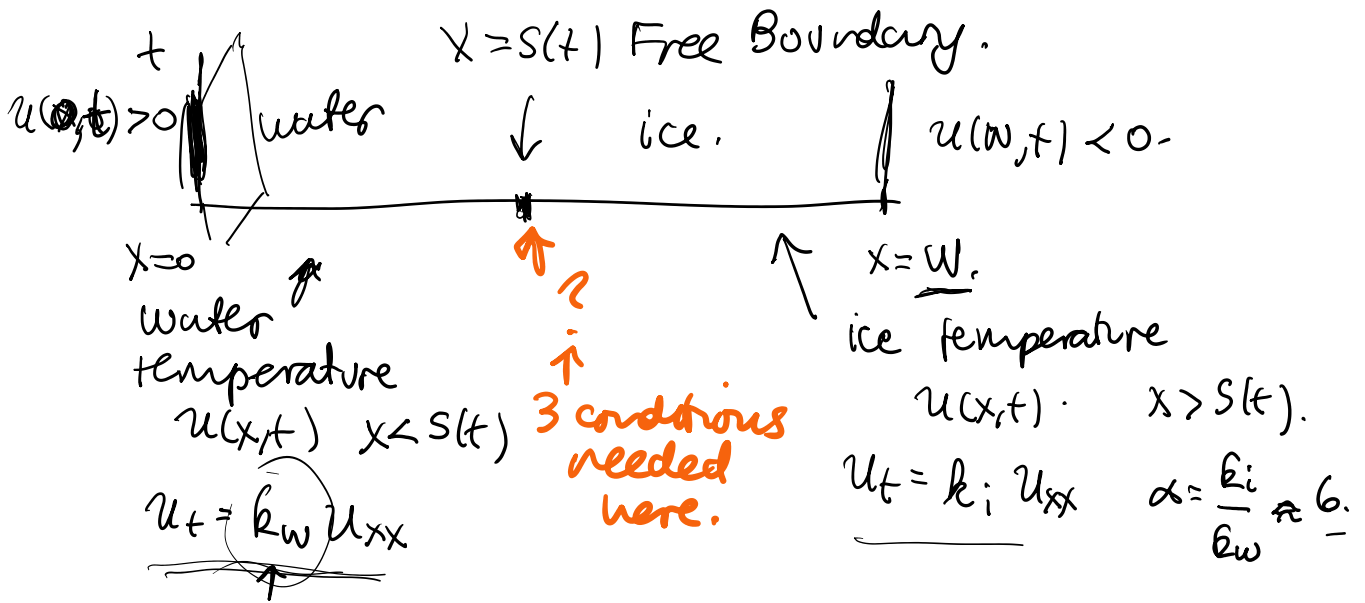 t
x = S(t) Free Boundary.
u(0,t) > 0
water
ice.
u(W,t) < 0.
x=0
x = W.
water
temperature
u(x,t) x < S(t)
u_t = k_w u_xx
?
3 conditions
needed
here.
ice temperature
u(x,t). x > S(t).
u_t = k_i u_xx α = k_i / k_w ≈ 6.